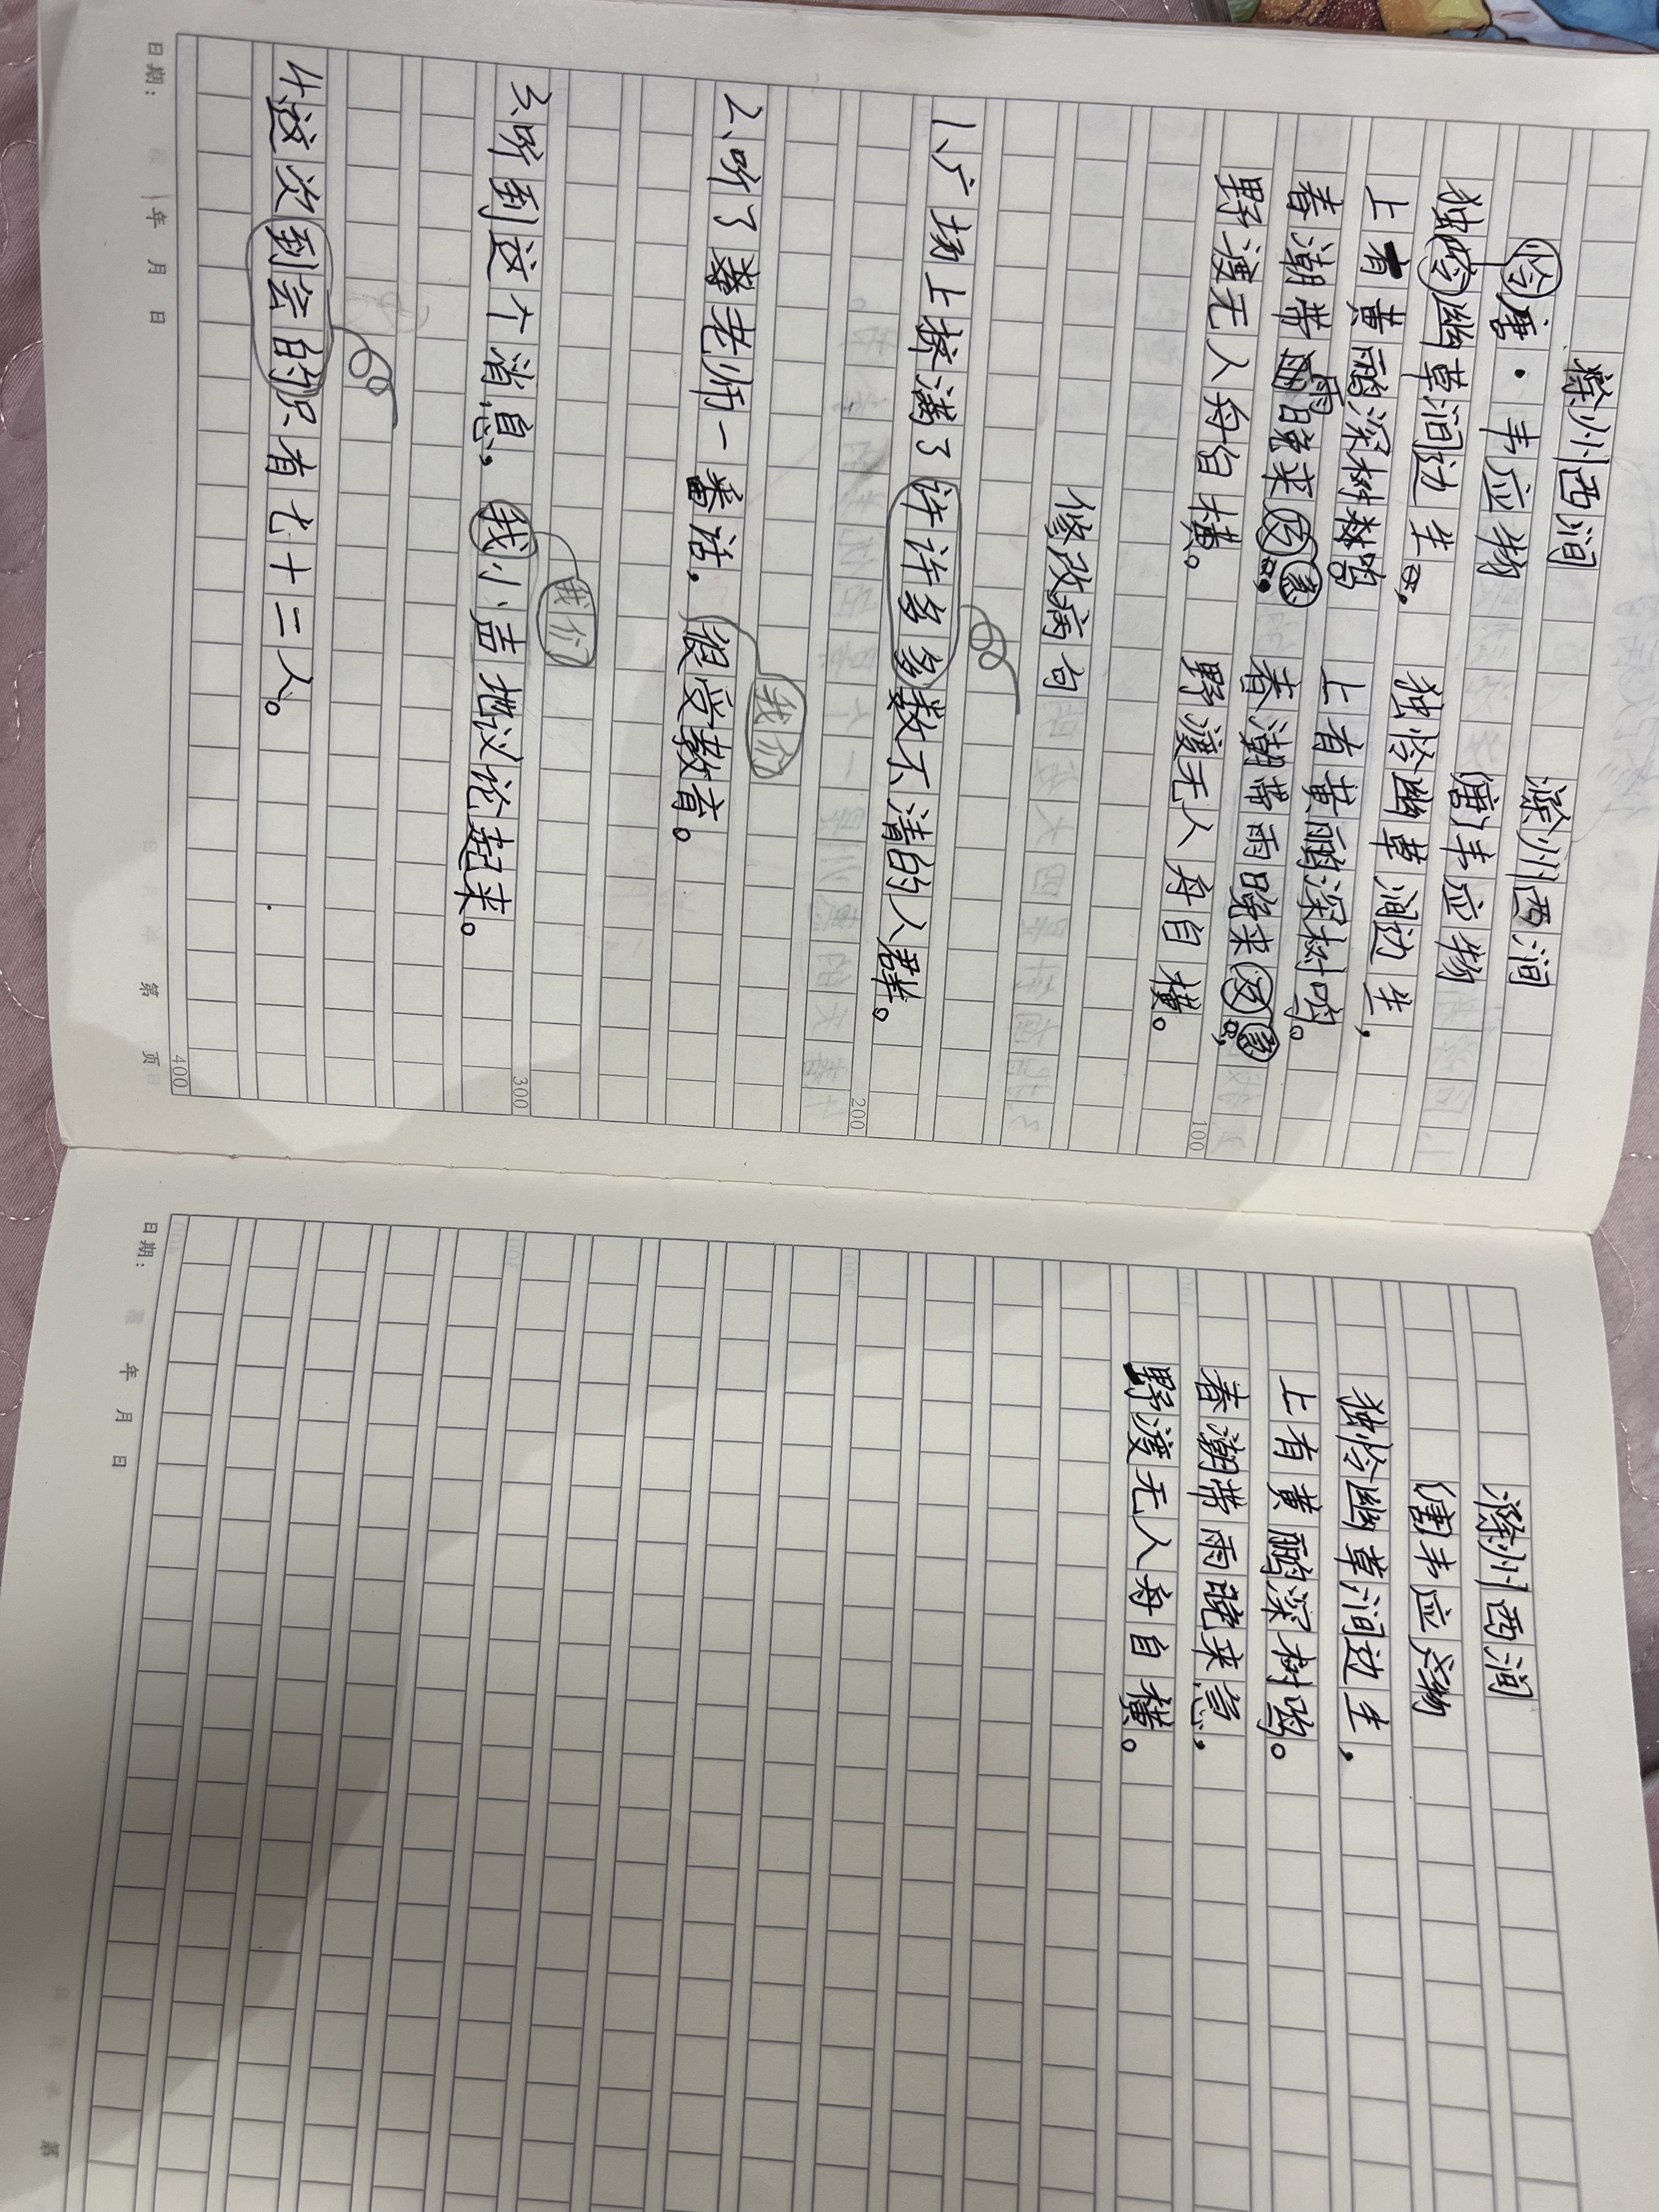 滁州西涧 滁州西涧
唐·韦应物 唐韦应物
怜
独怜幽草涧边生, 独怜幽草涧边生,
上有黄鹂深树鸣 上有黄鹂深树鸣。
春潮带雨晚来急, 春潮带雨晚来急,
雨
野渡无人舟自横。 野渡无人舟自横。
修改病句
1、广场上挤满了许许多多数不清的人群。
2、听了龚老师一番话,很受教育。
我们
3、听到这个消息,我小声地议论起来。
我们
4、这次到会的只有七十二人。
100
200
300
400
日期: 年 月 日 第 页
滁州西涧
唐韦应物
独怜幽草涧边生,
上有黄鹂深树鸣。
春潮带雨晚来急,
野渡无人舟自横。
日期: 年 月 日 第